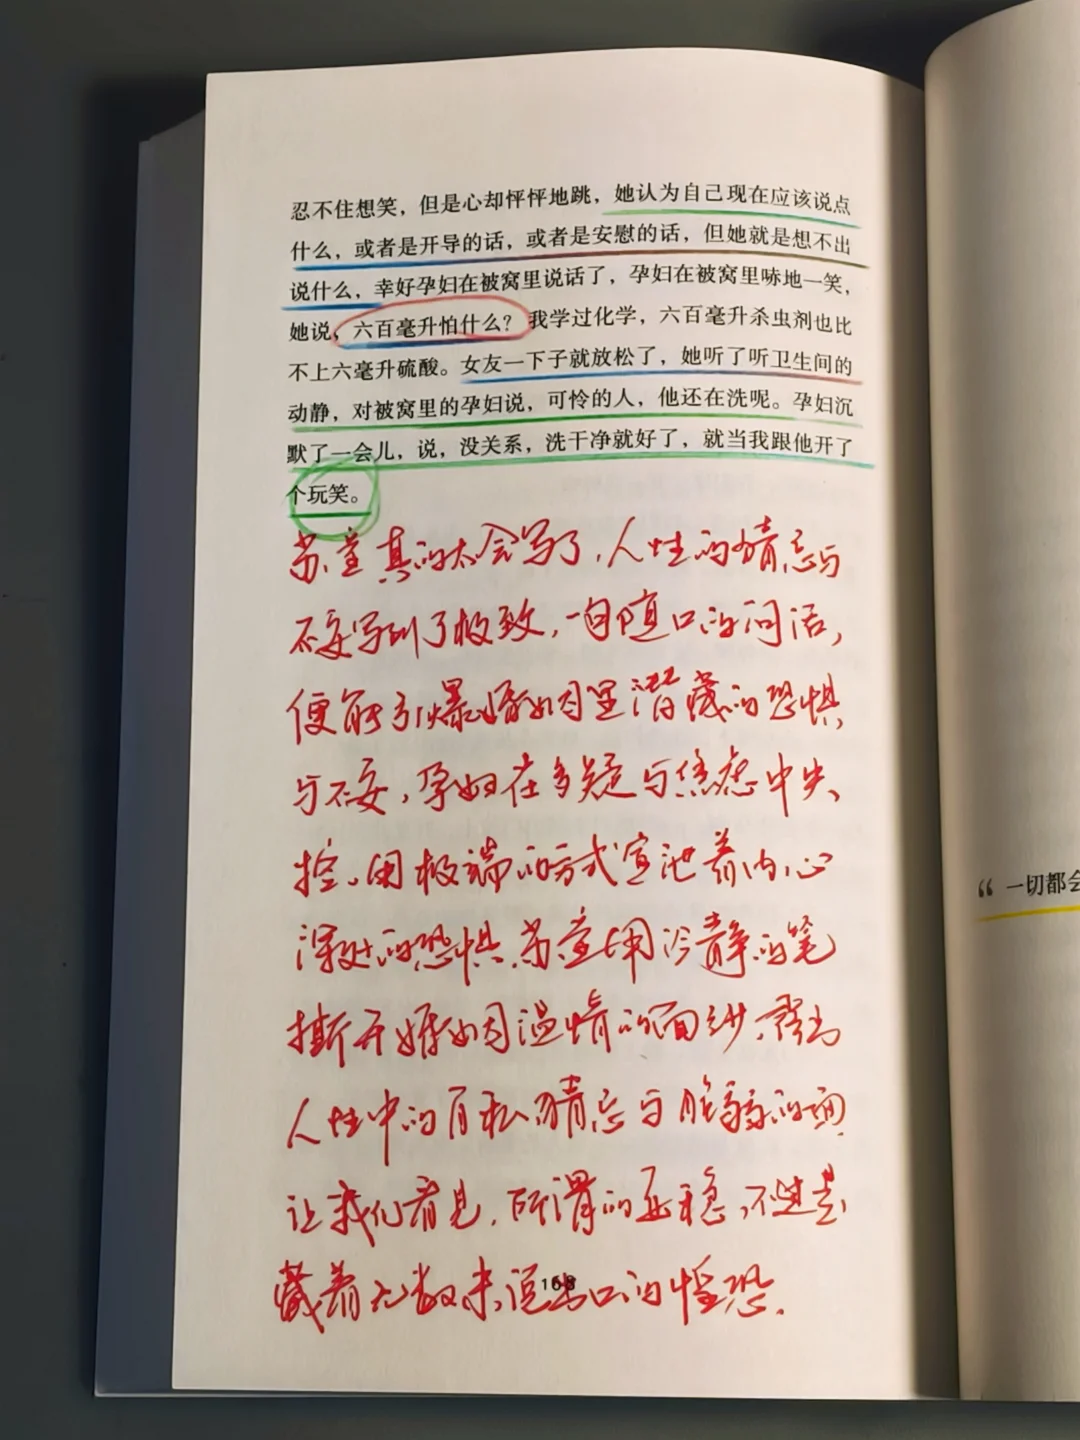 忍不住想笑，但是心却怦怦地跳，她认为自己现在应该说点
什么，或者是开导的话，或者是安慰的话，但她就是想不出
说什么，幸好孕妇在被窝里说话了，孕妇在被窝里哧地一笑，
她说，六百毫升怕什么？我学过化学，六百毫升杀虫剂也比
不上六毫升硫酸。女友一下子就放松了，她听了听卫生间的
动静，对被窝里的孕妇说，可怜的人，他还在洗呢。孕妇沉
默了一会儿，说，没关系，洗干净就好了，就当我跟他开了
个玩笑。
苏童真的太会写了，人性的猜忌与
不安写到了极致，一句随口的问话，
便能引爆婚姻里潜藏的恐惧
与不安，孕妇在多疑与焦虑中失
控。用极端的方式宣泄着内心
深处的恐惧。苏童用冷静的笔
撕开婚姻温情的面纱，露出
人性中的自私猜忌与脆弱的面，
让我们看见，所谓的平稳，不过是
藏着无数未说出口的惶恐。
168
“ 一切都会